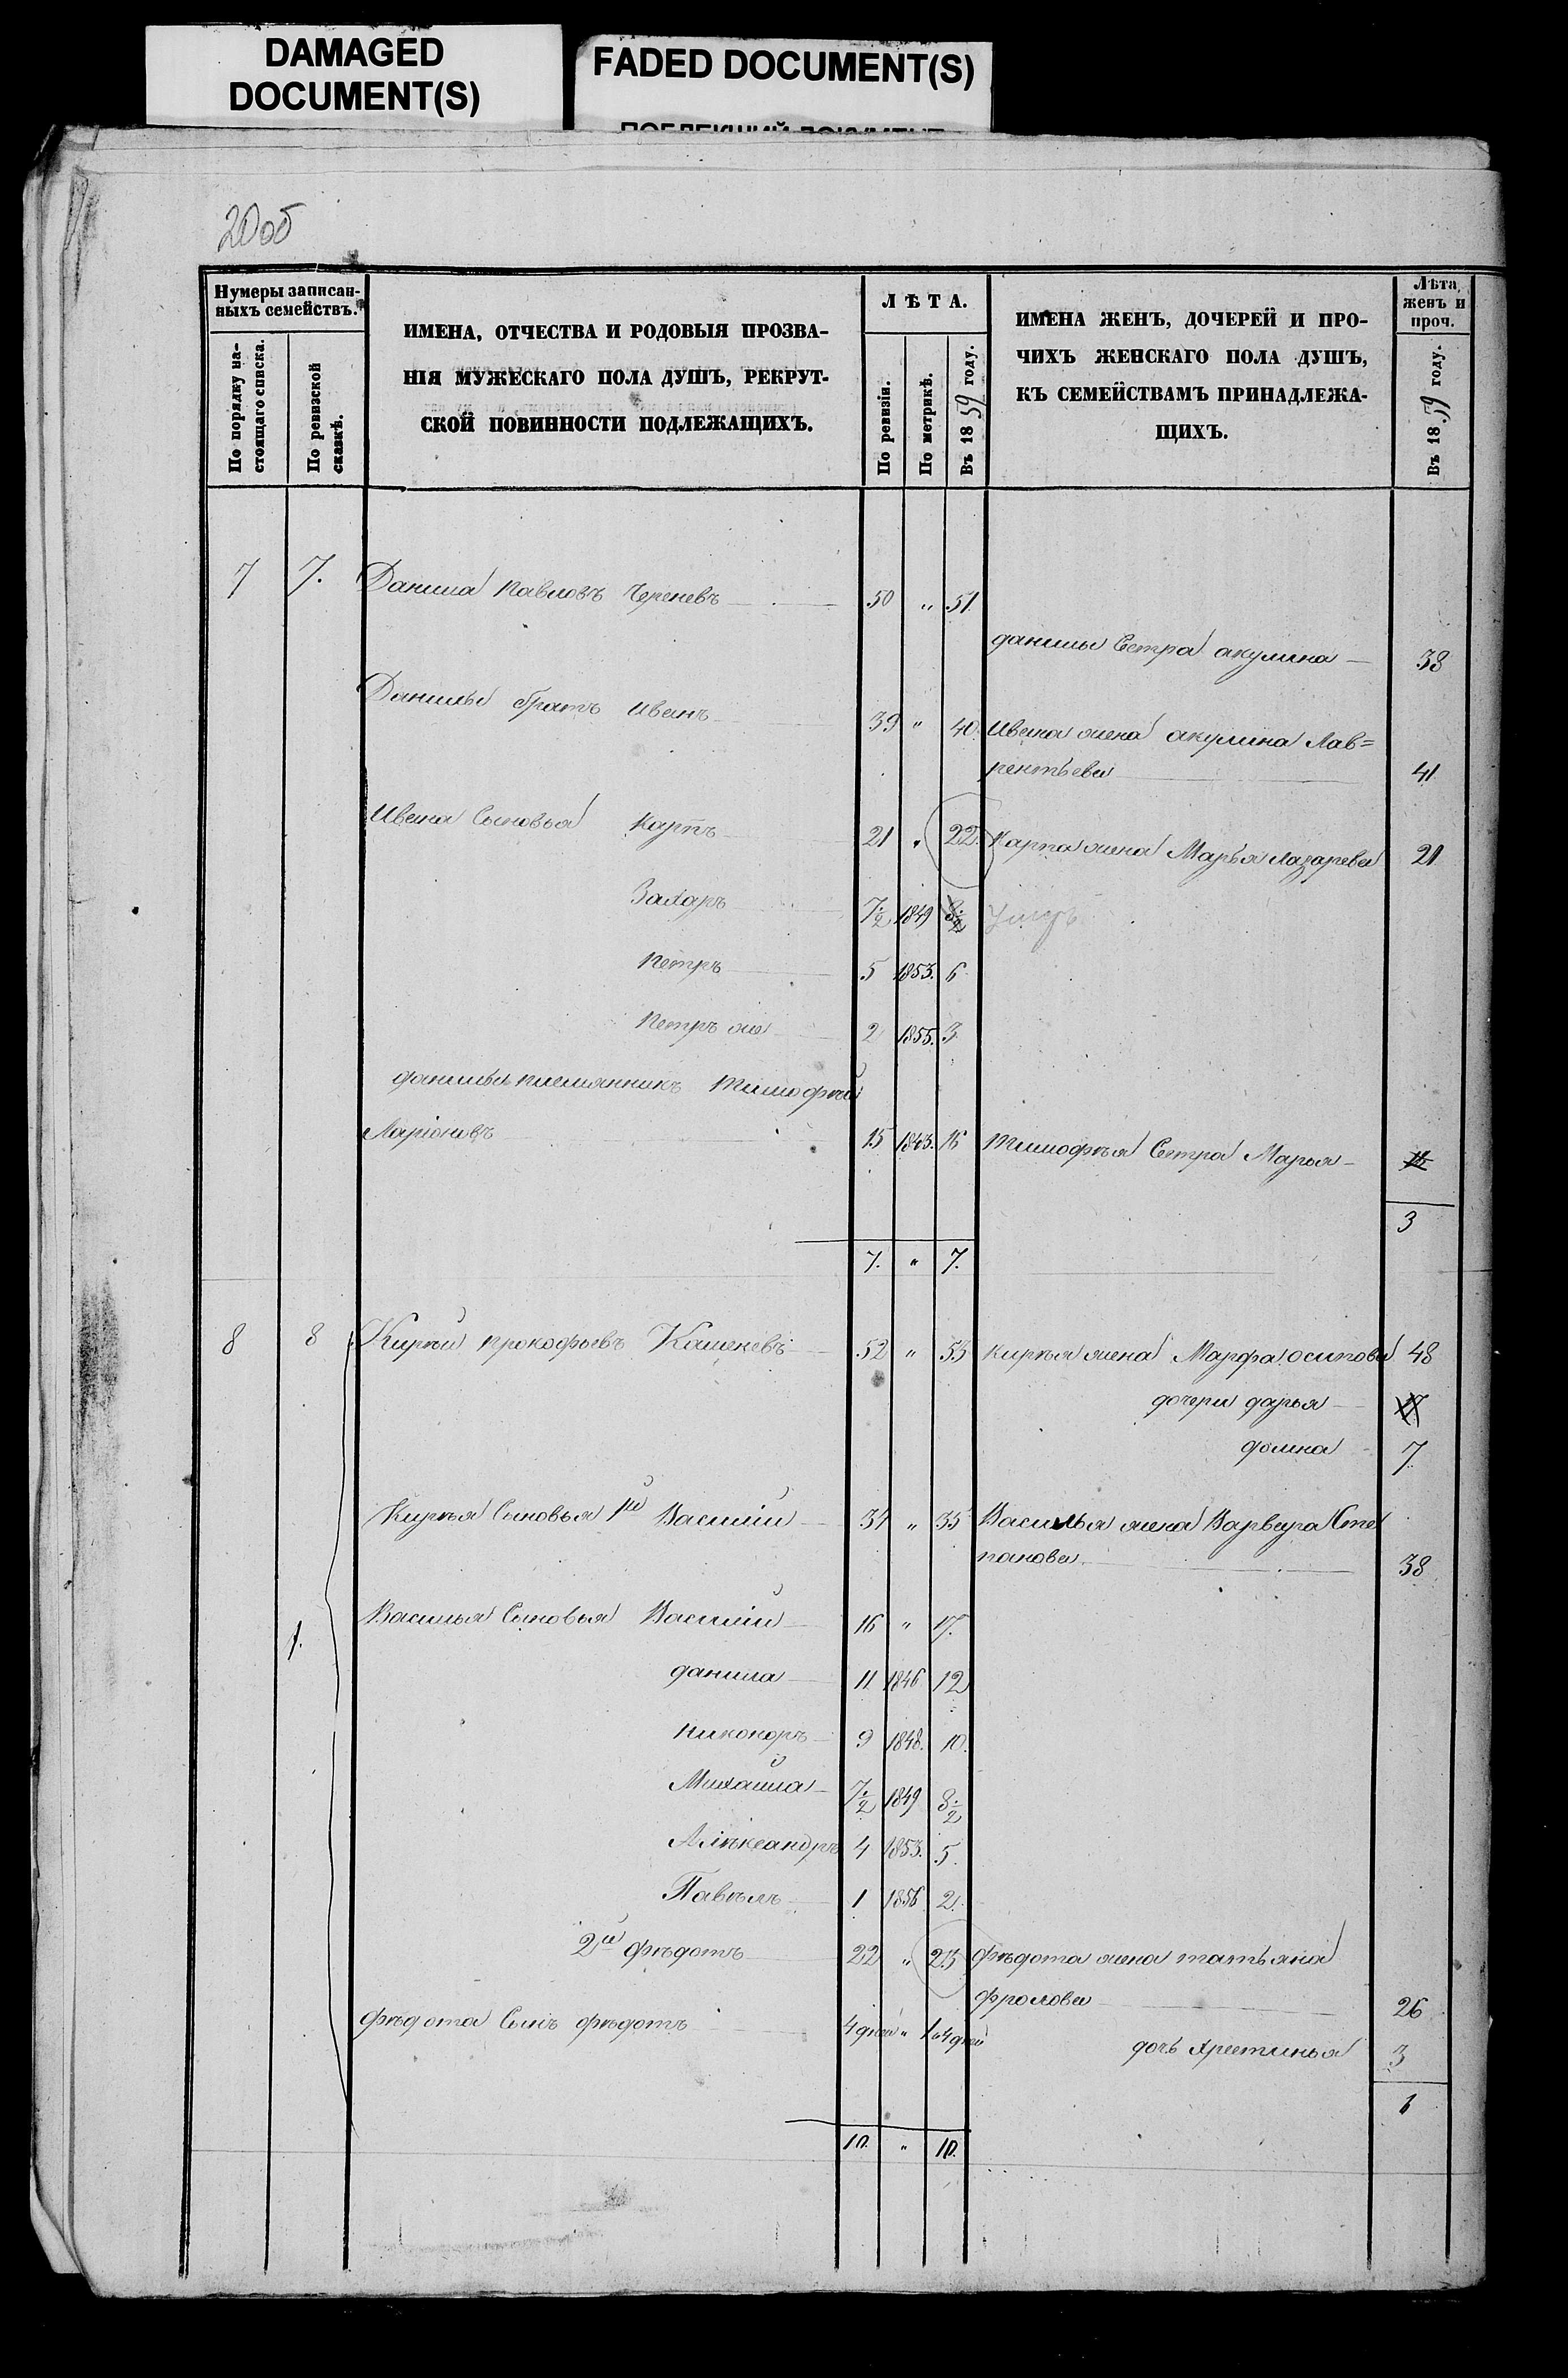 DAMAGED
DOCUMENT(S)
FADED DOCUMENT(S)
20об
Нумеры записан-
ныхъ семействъ.
По порядку на-
стоящаго списка.
По ревизской
сказкѣ.
ИМЕНА, ОТЧЕСТВА И РОДОВЫЯ ПРОЗВА-
НІЯ МУЖЕСКАГО ПОЛА ДУШЪ, РЕКРУТ-
СКОЙ ПОВИННОСТИ ПОДЛЕЖАЩИХЪ.
ЛѢТА.
По ревизіи.
По метрикѣ.
Въ 1859 году.
ИМЕНА ЖЕНЪ, ДОЧЕРЕЙ И ПРО-
ЧИХЪ ЖЕНСКАГО ПОЛА ДУШЪ,
КЪ СЕМЕЙСТВАМЪ ПРИНАДЛЕЖА-
ЩИХЪ.
Лѣта
женъ и
проч.
Въ 1859 году.
7 7. Данила павловъ Череневъ 50 " 51.
данилы Сестра акулина 38
Данилы братъ иванъ 39 " 40. Ивана жена акулина Лав=
рентьева 41
Ивана Сыновья Карпъ 21 " 22. Карпа жена Марья лазарева 21
Захаръ 7½ 1849 8½ умеръ
петръ 5 1853. 6
петръ же 2 1855. 3
данилы племянникъ тимофѣй
Ларіоновъ 15 1843. 16 тимофѣя Сестра Марья
3
7. " 7.
8 8 Кирѣй прокофьевъ Кашеневъ 52 " 53 кирѣя жена Марфа осипова 48
дочери дарья 17
домна 7
Кирѣя Сыновья 1й Василій 34 " 35 Василья жена Варвара Сте
панова 38
1. Василья Сыновья Василій 16 " 17.
данила 11 1846 12
никоноръ 9 1848. 10.
Михайла 7½ 1849 8½
Алѣксандръ 4 1853. 5.
Павѣлъ 1 1856 2.
2й фѣдотъ 22 " 23 фѣдота жена татьяна
фролова 26
фѣдота Сынъ фѣдотъ 4 дней " 1 и 4 дней
дочь хрестинья 3
6
10. " 10.